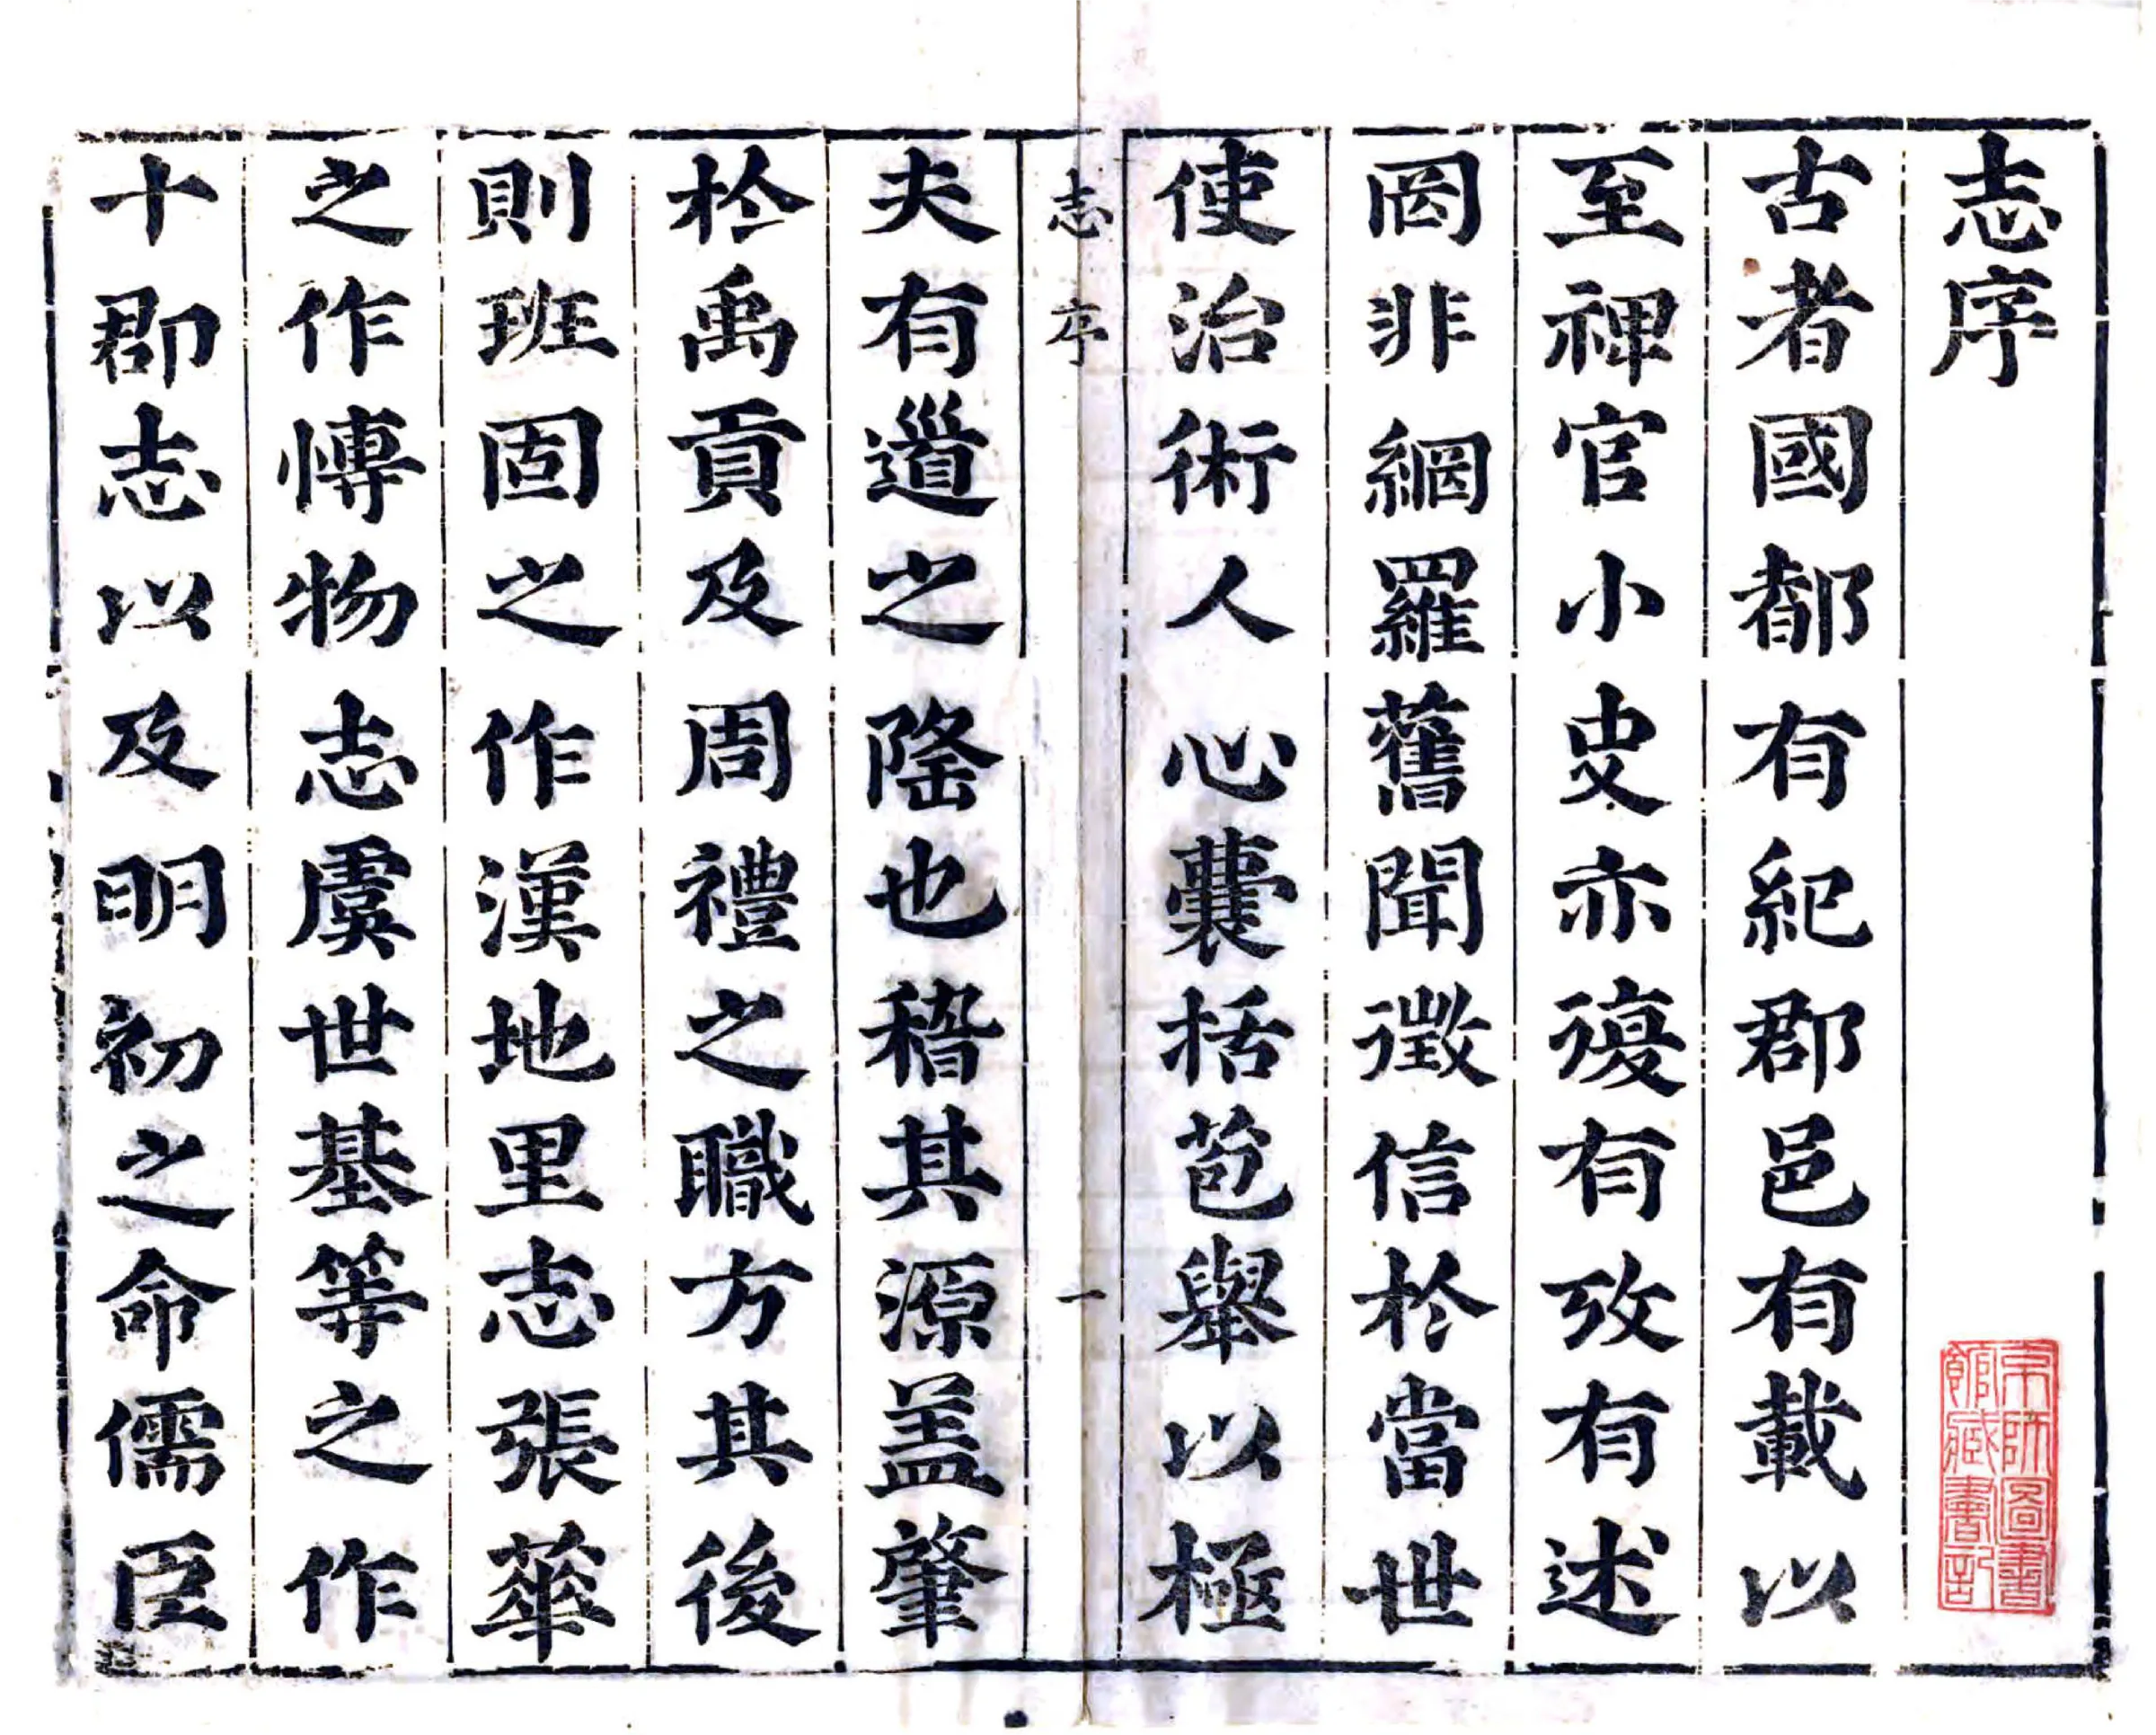 志序
古者國都有紀郡邑有載以
至禆官小史亦復有攷有述
罔非網羅舊聞徵信於當世
使治術人心囊括苞舉以極
志序 一
夫有道之隆也稽其源盖肇
於禹貢及周禮之職方其後
則班固之作漢地里志張華
之作愽物志虞世基等之作
十郡志以及明初之命儒臣
京師圖書
館藏書記